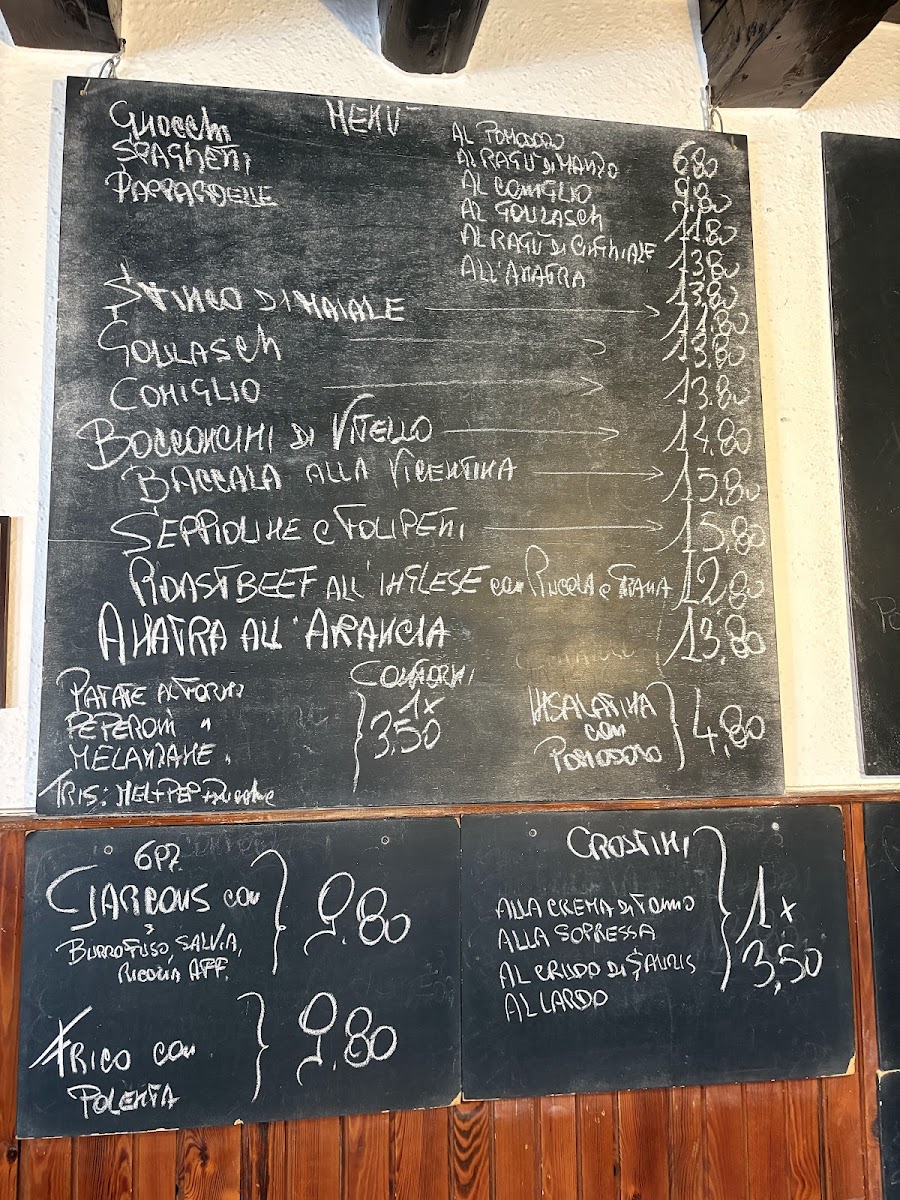 MENÙ
GNOCCHI
SPAGHETTI
PAPPARDELLE
AL POMODORO 6,80
AL RAGÙ DI MANZO 9,80
AL CONIGLIO 11,80
AL GOULASCH 13,80
AL RAGÙ DI CINGHIALE 13,80
ALL'ANATRA
STINCO DI MAIALE 11,80
GOULASCH 13,80
CONIGLIO 13,80
BOCCONCINI DI VITELLO 14,80
BACCALA ALLA VICENTINA 15,80
SEPPIOLINE E FOLIPETTI 15,80
ROASTBEEF ALL'INGLESE con RUCOLA e GRANA 12,80
ANATRA ALL'ARANCIA 13,80
CONTORNI
PATATE AL FORNO
PEPERONI "
MELANZANE "
TRIS: MEL+PEP+
1x
3,50
INSALATINA
con
POMODORO
4,80
6PZ
CJARSONS con
BURRO FUSO, SALVIA,
RICOTTA AFF.
9,80
FRICO con
POLENTA
9,80
CROSTINI
ALLA CREMA DI TONNO
ALLA SOPRESSA
AL CRUDO DI SAURIS
AL LARDO
1x
3,50